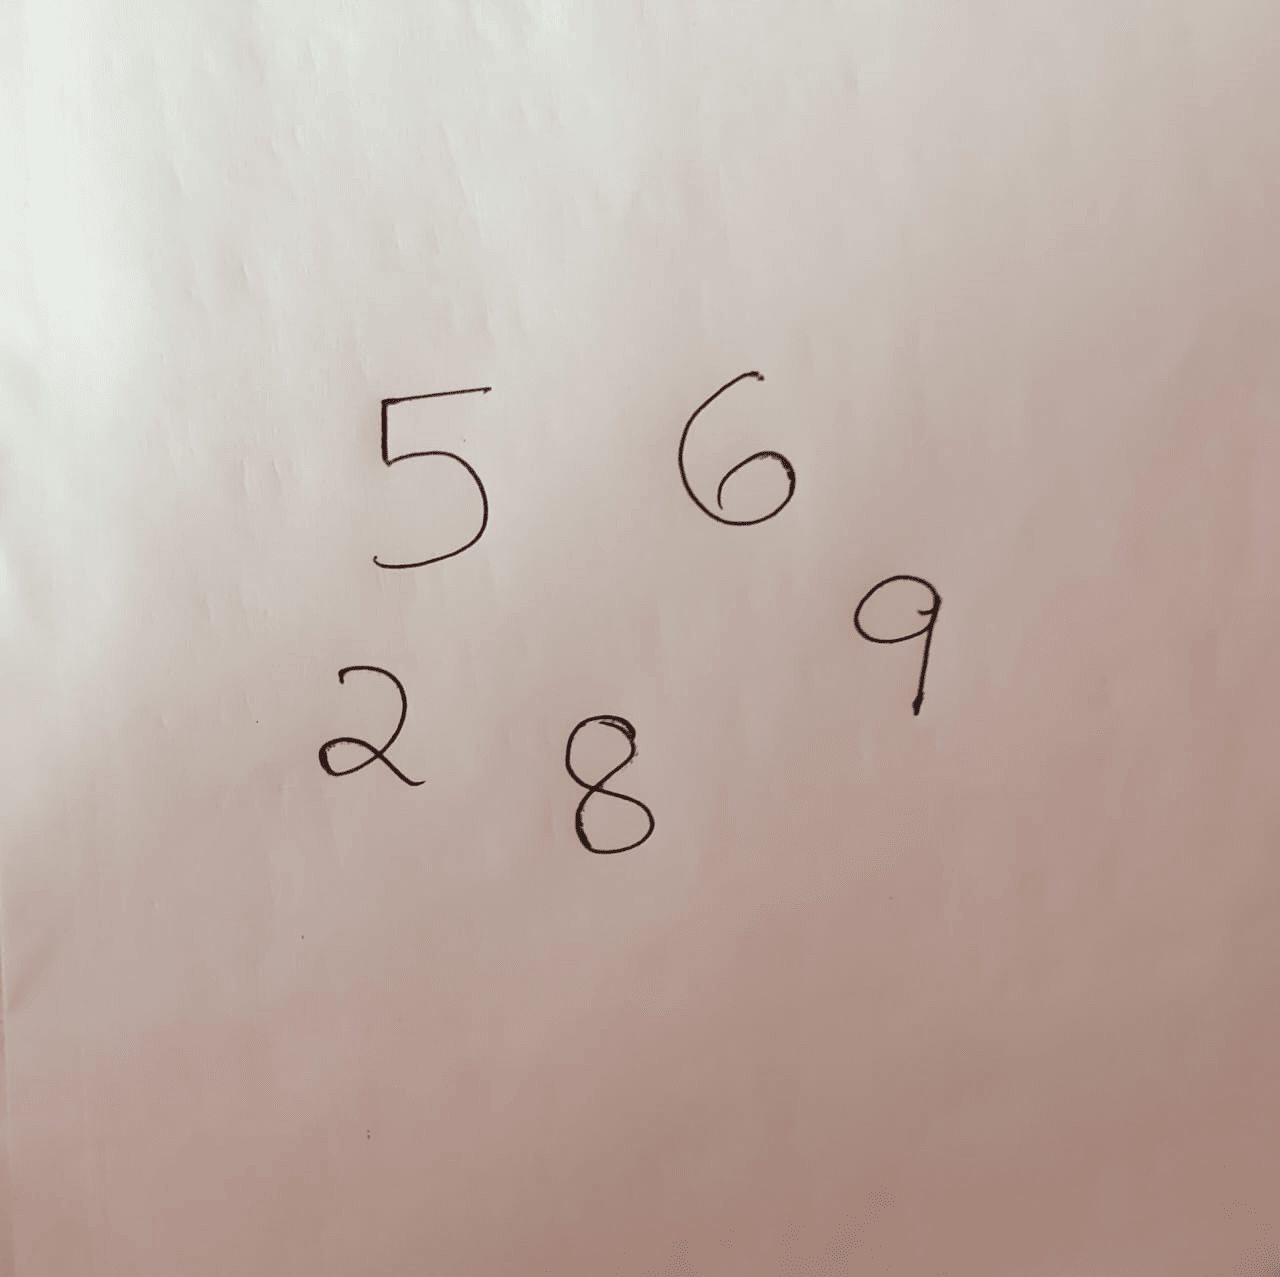 5 6
9
2 8